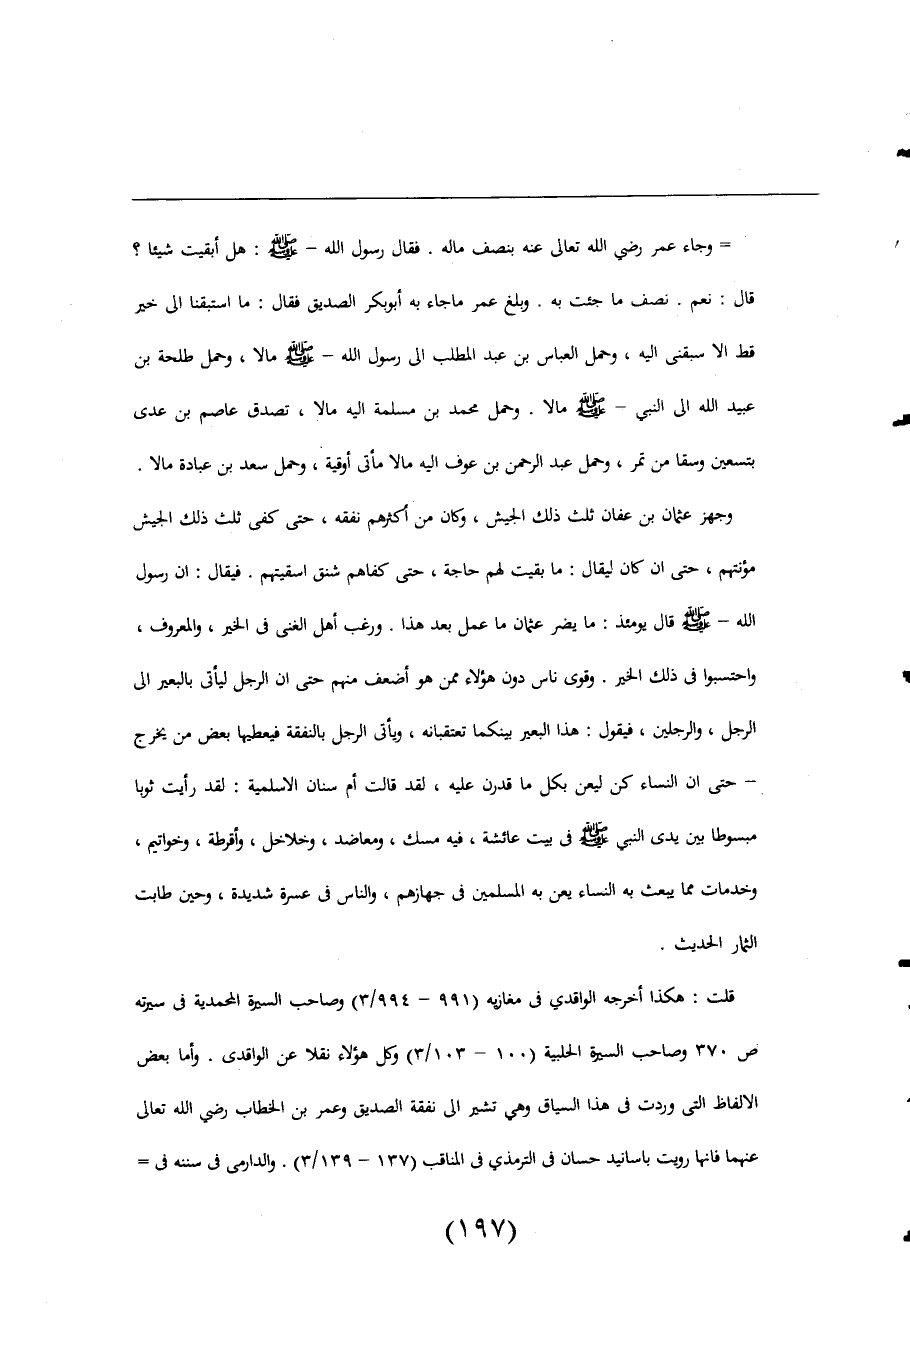 = وجاء عمر رضي الله تعالى عنه بنصف ماله . فقال رسول الله – ﷺ : هل أبقيت شيئا ؟
قال : نعم . نصف ما جئت به . وبلغ عمر ماجاء به أبوبكر الصديق فقال : ما استبقنا الى خير
قط الا سبقنى اليه ، وحمل العباس بن عبد المطلب الى رسول الله – ﷺ مالا ، وحمل طلحة بن
عبيد الله الى النبي – ﷺ مالا . وحمل محمد بن مسلمة اليه مالا ، تصدق عاصم بن عدى
بتسعين وسقا من تمر ، وحمل عبد الرحمن بن عوف اليه مالا مأتى أوقية ، وحمل سعد بن عبادة مالا .
وجهز عثمان بن عفان ثلث ذلك الجيش ، وكان من أكثرهم نفقه ، حتى كفى ثلث ذلك الجيش
مؤنتهم ، حتى ان كان ليقال : ما بقيت لهم حاجة ، حتى كفاهم شنق اسقيتهم . فيقال : ان رسول
الله – ﷺ قال يومئذ : ما يضر عثمان ما عمل بعد هذا . ورغب أهل الغنى فى الخير ، والمعروف ،
واحتسبوا فى ذلك الخير . وقوى ناس دون هؤلاء ممن هو أضعف منهم حتى ان الرجل ليأتى بالبعير الى
الرجل ، والرجلين ، فيقول : هذا البعير بينكما تعتقبانه ، ويأتى الرجل بالنفقة فيعطيها بعض من يخرج
– حتى ان النساء كن ليعن بكل ما قدرن عليه ، لقد قالت أم سنان الاسلمية : لقد رأيت ثوبا
مبسوطا بين يدى النبي ﷺ فى بيت عائشة ، فيه مسك ، ومعاضد ، وخلاخل ، وأقرطة ، وخواتيم ،
وخدمات مما يبعث به النساء يعن به المسلمين فى جهازهم ، والناس فى عسرة شديدة ، وحين طابت
الثمار الحديث .
قلت : هكذا أخرجه الواقدي فى مغازيه (٩٩١ – ٣/٩٩٤) وصاحب السيرة المحمدية فى سيرته
ص ٣٧٠ وصاحب السيرة الحلبية (١٠٠ – ٣/١٠٣) وكل هؤلاء نقلا عن الواقدى . وأما بعض
الالفاظ التى وردت فى هذا السياق وهي تشير الى نفقة الصديق وعمر بن الخطاب رضي الله تعالى
عنهما فانها رويت باسانيد حسان فى الترمذي فى المناقب (١٣٧ – ٣/١٣٩) . والدارمى فى سننه فى =
(١٩٧)